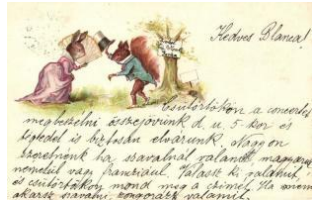 Kedves Blanca!
Csütörtökön a concertet
megbeszélni összejövünk d. u. 5-kor és
tégedet is biztosan elvárunk. Nagyon
szeretnénk ha szavalnál valamit magyarul
németül vagy franciául. Válassz ki valamit,
és csütörtökön mond meg a czimét. Ha nem
akarsz szavalni, zongorázz valamit.